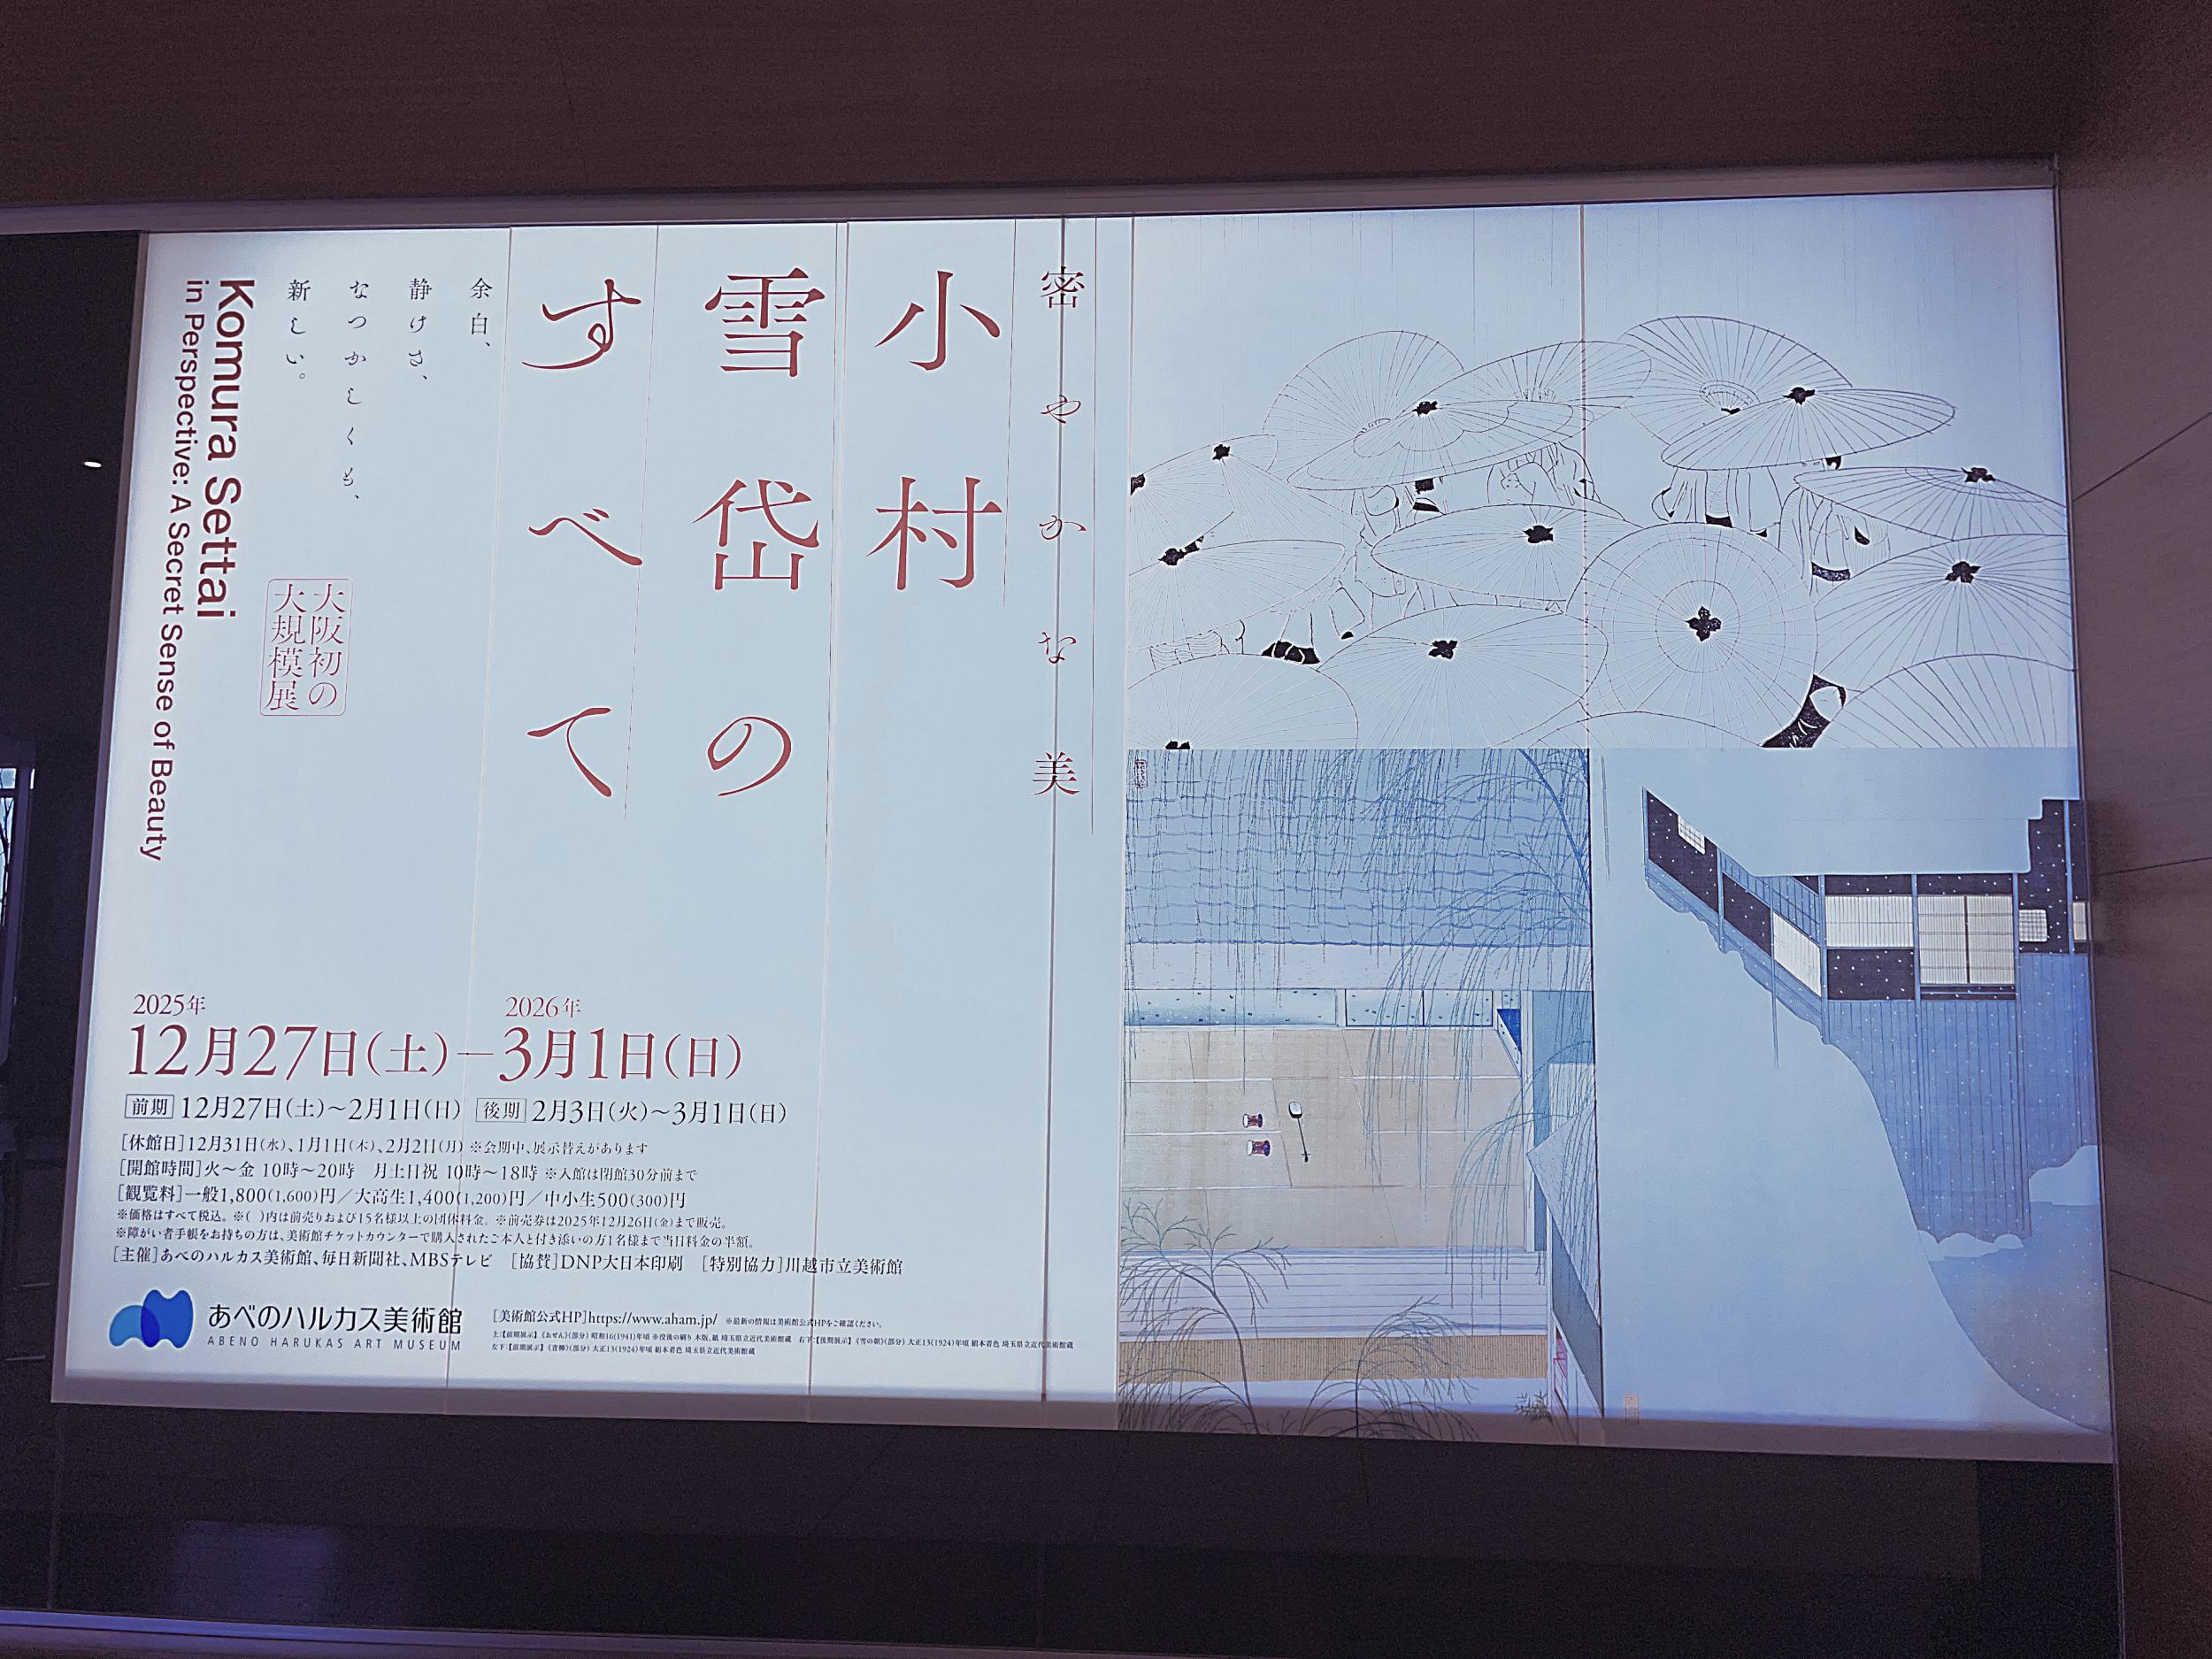 密やかな美
小村
雪岱の
すべて
余白、
静けさ、
なつかしくも、
新しい。
大阪初の
大規模展
Komura Settai
in Perspective: A Secret Sense of Beauty
2025年
12月27日(土)―
2026年
3月1日(日)
前期 12月27日(土)〜2月1日(日) 後期 2月3日(火)〜3月1日(日)
[休館日]12月31日(水)、1月1日(木)、2月2日(月) ※会期中、展示替えがあります
[開館時間]火〜金 10時〜20時 月土日祝 10時〜18時 ※入館は閉館30分前まで
[観覧料]一般1,800(1,600)円／大高生1,400(1,200)円／中小生500(300)円
※価格はすべて税込。※( )内は前売りおよび15名様以上の団体料金。※前売券は2025年12月26日(金)まで販売。
※障がい者手帳をお持ちの方は、美術館チケットカウンターで購入されたご本人と付き添いの方1名様まで当日料金の半額。
[主催]あべのハルカス美術館、毎日新聞社、MBSテレビ [協賛]DNP大日本印刷 [特別協力]川越市立美術館
あべのハルカス美術館
ABENO HARUKAS ART MUSEUM
[美術館公式HP]https://www.aham.jp/ ※最新の情報は美術館公式HPをご確認ください。
上:【前期展示】《おせん》(部分) 昭和16(1941)年頃 ※没後の刷り 木版、紙 埼玉県立近代美術館蔵 右下:【後期展示】《雪の朝》(部分) 大正13(1924)年頃 絹本着色 埼玉県立近代美術館蔵
左下:【前期展示】《青柳》(部分) 大正13(1924)年頃 絹本着色 埼玉県立近代美術館蔵